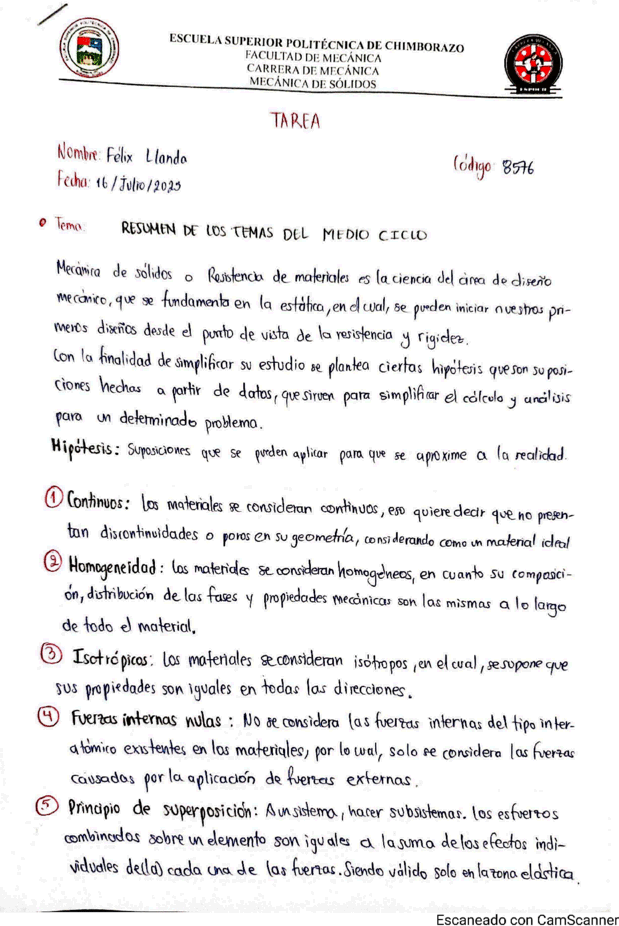 ESCUELA SUPERIOR POLITÉCNICA DE CHIMBORAZO
FACULTAD DE MECÁNICA
CARRERA DE MECÁNICA
MECÁNICA DE SÓLIDOS
TAREA
Nombre: Félix Llanda
Código: 8576
Fecha: 16/Julio/2025
Tema: RESUMEN DE LOS TEMAS DEL MEDIO CICLO
Mecánica de sólidos o Resistencia de materiales es la ciencia del área de diseño
mecánico, que se fundamenta en la estática, en el cual, se pueden iniciar nuestros pri-
meros diseños desde el punto de vista de la resistencia y rigidez.
Con la finalidad de simplificar su estudio se plantea ciertas hipótesis que son suposi-
ciones hechas a partir de datos, que sirven para simplificar el cálculo y análisis
para un determinado problema.
Hipótesis: Suposiciones que se pueden aplicar para que se aproxime a la realidad.
① Continuos: los materiales se consideran continuos, eso quiere decir que no presen-
tan discontinuidades o poros en su geometría, considerando como un material ideal
② Homogeneidad: los materiales se consideran homogéneos, en cuanto su composici-
ón, distribución de las fases y propiedades mecánicas son las mismas a lo largo
de todo el material.
③ Isotrópicos: Los materiales se consideran isótropos, en el cual, se supone que
sus propiedades son iguales en todas las direcciones.
④ Fuerzas internas nulas: No se considera las fuerzas internas del tipo inter-
atómico existentes en los materiales, por lo cual, solo se considera las fuerzas
causadas por la aplicación de fuerzas externas.
⑤ Principio de superposición: A un sistema, hacer subsistemas. los esfuerzos
combinados sobre un elemento son iguales a la suma de los efectos indi-
viduales de(la) cada una de las fuerzas. Siendo válido solo en la zona elástica.
Escaneado con CamScanner